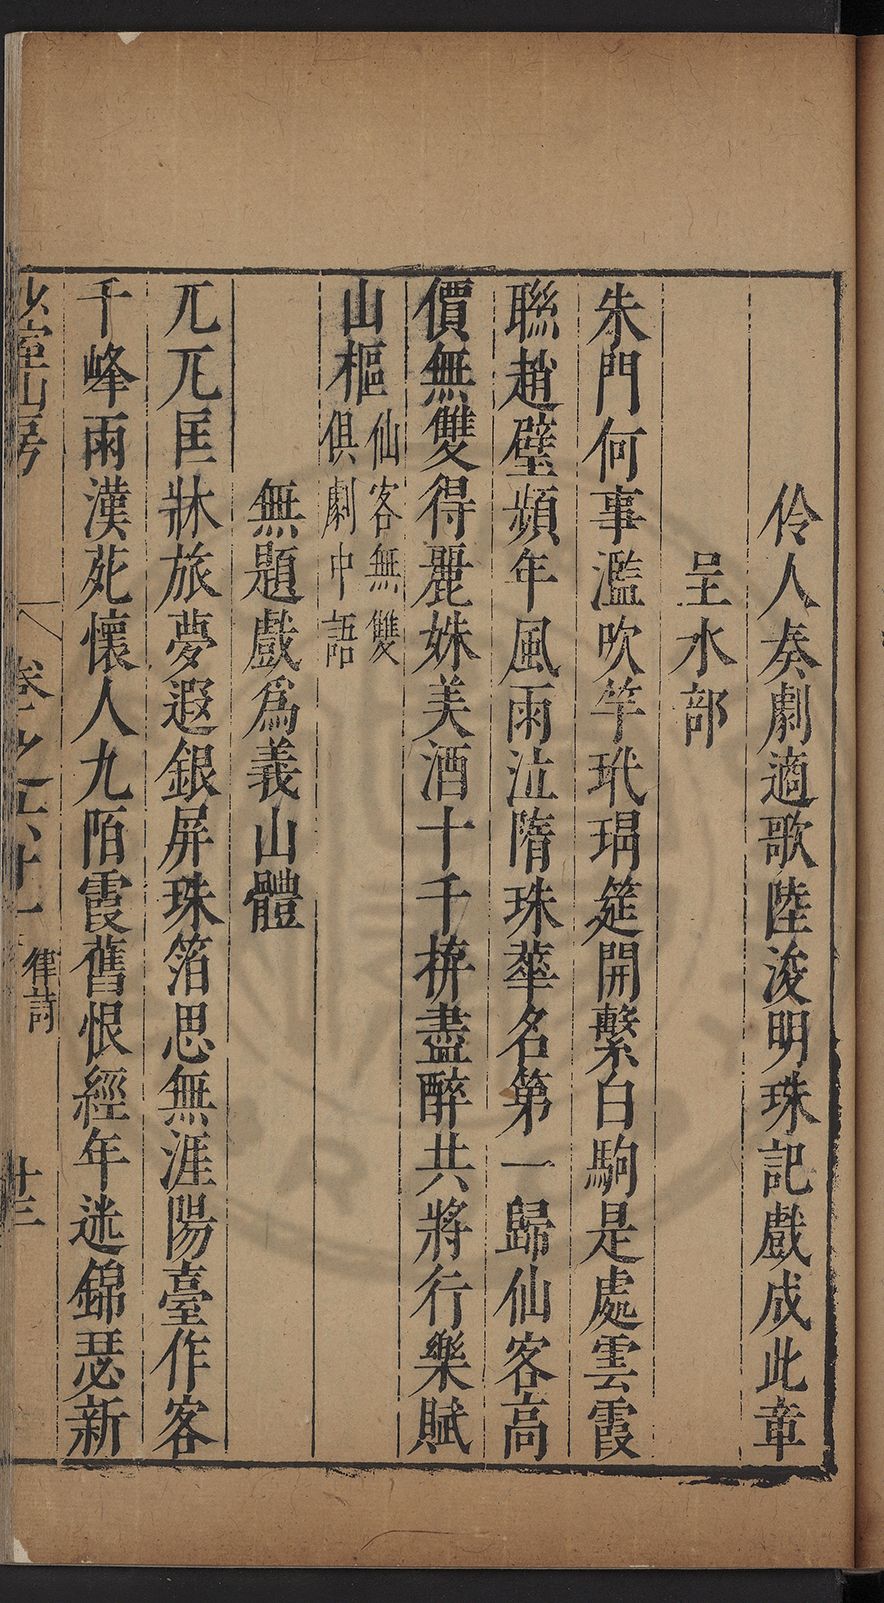 伶人奏劇適歌陸浚明珠記戲成此章
呈水部
朱門何事濫吹竽玳瑁筵開繫白駒是處雲霞
聯趙璧頻年風雨泣隋珠華名第一歸仙客高
價無雙得麗姝美酒十千拚盡醉共將行樂賦
山樞仙客無雙
俱劇中語
無題戲爲義山體
兀兀匡牀旅夢遐銀屏珠箔思無涯陽臺作客
千峰雨漢苑懷人九陌霞舊恨經年迷錦瑟新
少室山房
卷之五十一
律詩
廿三